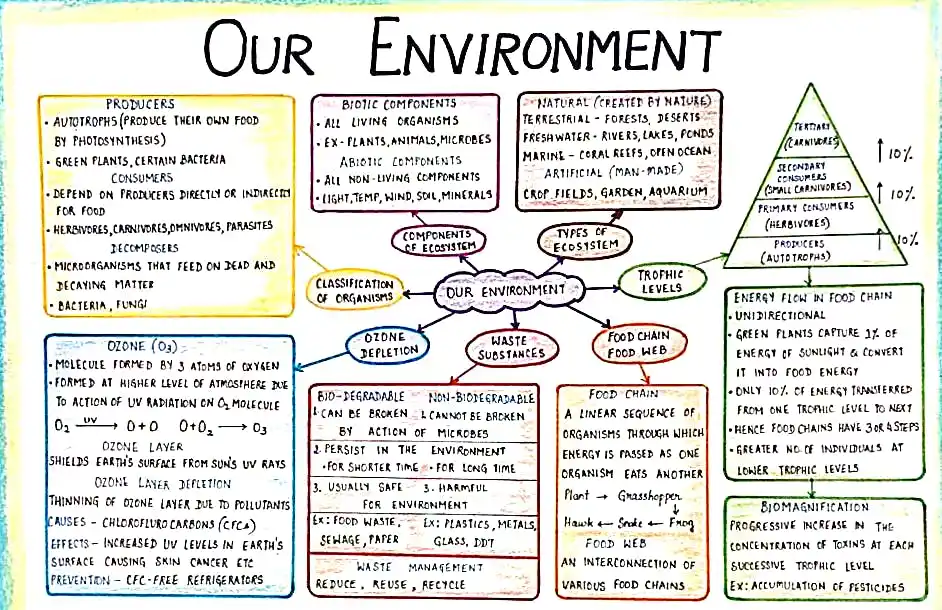 OUR ENVIRONMENT
PRODUCERS
• AUTOTROPHS (PRODUCE THEIR OWN FOOD
BY PHOTOSYNTHESIS)
• GREEN PLANTS, CERTAIN BACTERIA
CONSUMERS
• DEPEND ON PRODUCERS DIRECTLY OR INDIRECTLY
FOR FOOD
• HERBIVORES, CARNIVORES, OMNIVORES, PARASITES
DECOMPOSERS
• MICROORGANISMS THAT FEED ON DEAD AND
DECAYING MATTER
• BACTERIA, FUNGI
BIOTIC COMPONENTS
• ALL LIVING ORGANISMS
• EX- PLANTS, ANIMALS, MICROBES
ABIOTIC COMPONENTS
• ALL NON-LIVING COMPONENTS
• LIGHT, TEMP, WIND, SOIL, MINERALS
NATURAL (CREATED BY NATURE)
TERRESTRIAL - FORESTS, DESERTS
FRESHWATER - RIVERS, LAKES, PONDS
MARINE - CORAL REEFS, OPEN OCEAN
ARTIFICIAL (MAN-MADE)
CROP FIELDS, GARDEN, AQUARIUM
TERTIARY
(CARNIVORES)
10%
SECONDARY
CONSUMERS
(SMALL CARNIVORES)
10%
PRIMARY CONSUMERS
(HERBIVORES)
10%
PRODUCERS
(AUTOTROPHS)
COMPONENTS
OF ECOSYSTEM
TYPES OF
ECOSYSTEM
CLASSIFICATION
OF ORGANISMS
OUR ENVIRONMENT
TROPHIC
LEVELS
OZONE
DEPLETION
WASTE
SUBSTANCES
FOOD CHAIN
FOOD WEB
OZONE (O3)
• MOLECULE FORMED BY 3 ATOMS OF OXYGEN
• FORMED AT HIGHER LEVEL OF ATMOSTHERE DUE
TO ACTION OF UV RADIATION ON O2 MOLECULE
O2 —UV→ O+O O+O2 → O3
OZONE LAYER
SHIELDS EARTH'S SURFACE FROM SUN'S UV RAYS
OZONE LAYER DEPLETION
THINNING OF OZONE LAYER DUE TO POLLUTANTS
CAUSES - CHLOROFLURO CARBONS (CFCs)
EFFECTS - INCREASED UV LEVELS IN EARTH'S
SURFACE CAUSING SKIN CANCER ETC
PREVENTION - CFC-FREE REFRIGERATORS
BIO-DEGRADABLE NON-BIODEGRADABLE
1. CAN BE BROKEN 1. CANNOT BE BROKEN
BY ACTION OF MICROBES
2. PERSIST IN THE ENVIRONMENT
• FOR SHORTER TIME • FOR LONG TIME
3. USUALLY SAFE 3. HARMFUL
FOR ENVIRONMENT
EX: FOOD WASTE, EX: PLASTICS, METALS,
SEWAGE, PAPER GLASS, DDT
WASTE MANAGEMENT
REDUCE, REUSE, RECYCLE
FOOD CHAIN
A LINEAR SEQUENCE OF
ORGANISMS THROUGH WHICH
ENERGY IS PASSED AS ONE
ORGANISM EATS ANOTHER
Plant → Grasshopper
Hawk ← Snake ← Frog
FOOD WEB
AN INTERCONNECTION OF
VARIOUS FOOD CHAINS
ENERGY FLOW IN FOOD CHAIN
• UNIDIRECTIONAL
• GREEN PLANTS CAPTURE 1% OF
ENERGY OF SUNLIGHT & CONVERT
IT INTO FOOD ENERGY
• ONLY 10% OF ENERGY TRANSFERRED
FROM ONE TROPHIC LEVEL TO NEXT
• HENCE FOOD CHAINS HAVE 3 OR 4 STEPS
• GREATER NO. OF INDIVIDUALS AT
LOWER TROPHIC LEVELS
BIOMAGNIFICATION
PROGRESSIVE INCREASE IN THE
CONCENTRATION OF TOXINS AT EACH
SUCCESSIVE TROPHIC LEVEL
EX: ACCUMULATION OF PESTICIDES